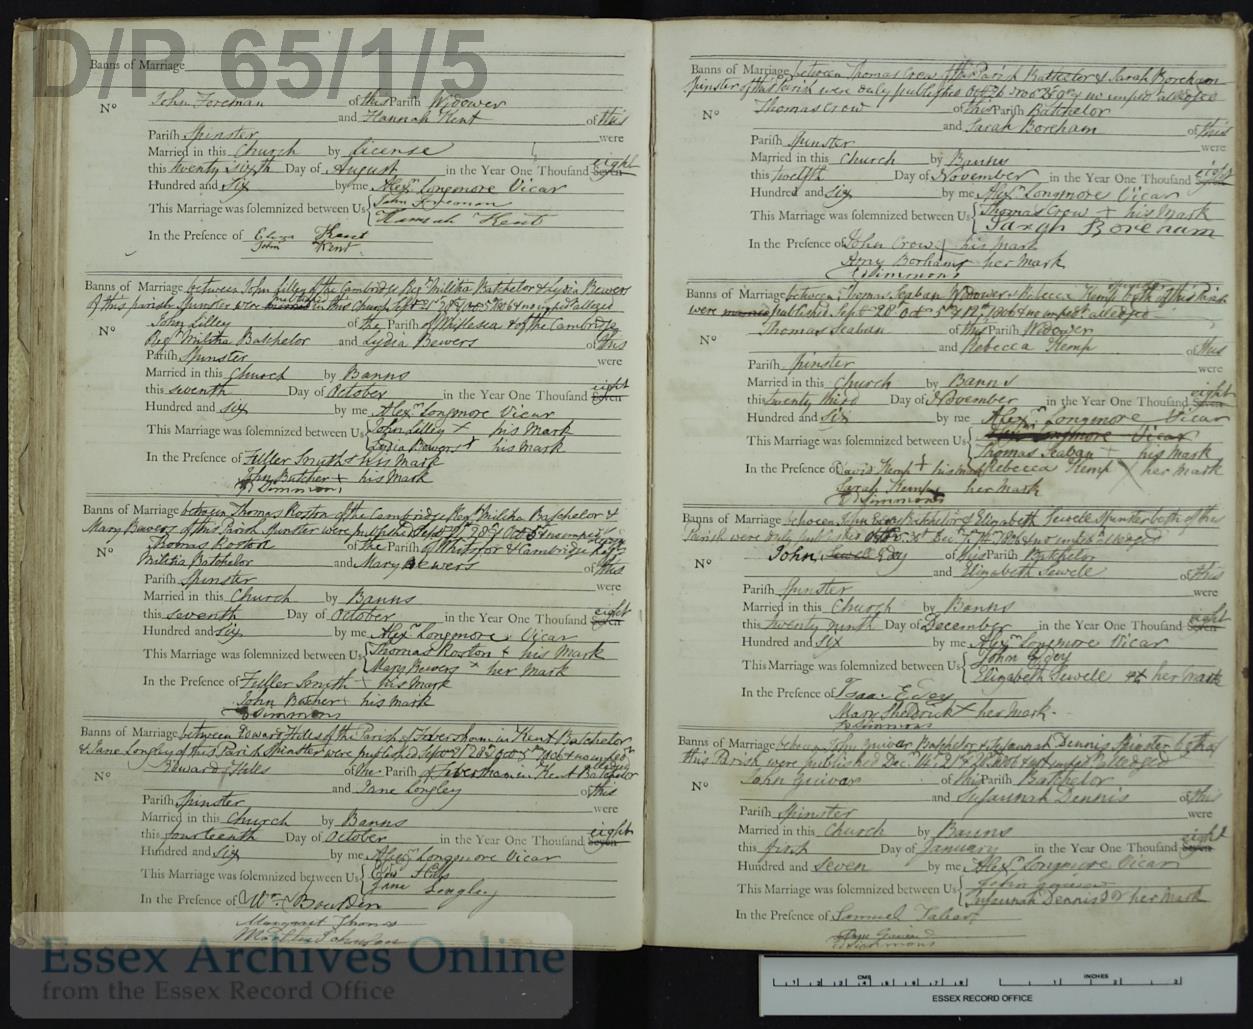 D/P 65/1/5
Banns of Marriage
No John Foreman of this Parish Widower
and Hannah Kent of this
Parish Spinster were
Married in this Church by License
this twenty sixth Day of August in the Year One Thousand eight Seven
Hundred and Six by me Alexr Longmore Vicar
This Marriage was solemnized between Us John Foreman
Hannah Kent
In the Presence of Eliza Kent
John Kent
Banns of Marriage between John Lilley of the Cambridge Regt Militia Batchelor & Lydia Bewers
of this parish Spinster were in this Church Sept 21st 28th Oct 5th 1806 & no imped alledged
No John Lilley of the Parish of & of the Cambridge
Regt Militia Batchelor and Lydia Bewers of this
Parish Spinster were
Married in this Church by Banns
this seventh Day of October in the Year One Thousand eight Seven
Hundred and Six by me Alexr Longmore Vicar
This Marriage was solemnized between Us John Lilley + his Mark
Lydia Bewers + his Mark
In the Presence of Fuller Smyth + his Mark
John Butcher + his Mark
Simmons
Banns of Marriage between Thomas Roston of the Cambridge Regt Militia Batchelor &
Mary Bewers of this Parish Spinster were published Sept 21st 28th Oct 5th & no imped
No Thomas Roston of the Parish of Cambridge Regt
Militia Batchelor and Mary Bewers of this
Parish Spinster were
Married in this Church by Banns
this seventh Day of October in the Year One Thousand eight Seven
Hundred and Six by me Alexr Longmore Vicar
This Marriage was solemnized between Us Thomas Roston + his Mark
Mary Bewers + her Mark
In the Presence of Fuller Smyth + his Mark
John Butcher his Mark
Simmons
Banns of Marriage between Edward Hills of the Parish of Feversham in Kent Batchelor
& Jane Longley of this Parish Spinster were published Sept 21st 28th Oct 5th 1806 & no imped
alledged
No Edward Hills of the Parish of Feversham in Kent Batchelor
and Jane Longley of this
Parish Spinster were
Married in this Church by Banns
this fourteenth Day of October in the Year One Thousand eight Seven
Hundred and Six by me Alexr Longmore Vicar
This Marriage was solemnized between Us Edw Hills
Jane Longley
In the Presence of Wm Bowden
Margaret Thomas
Martha Johnson
Essex Archives Online
from the Essex Record Office
Banns of Marriage between Thomas Crow of this Parish Batchelor & Sarah Boreham
Spinster of this Parish were duly published no imped alledged
No Thomas Crow of this Parish Batchelor
and Sarah Boreham of this
Parish Spinster were
Married in this Church by Banns
this twelfth Day of November in the Year One Thousand eight Seven
Hundred and Six by me Alexr Longmore Vicar
This Marriage was solemnized between Us Thomas Crow + his Mark
Sarah Boreham
In the Presence of John Crow + his Mark
Amy Borham + her Mark
Simmons
Banns of Marriage between Thomas Seaban Widower & Rebecca Kemp both of this Parish
were published Sept 28th Oct 5th & 12th 1806 & no imped alledged
No Thomas Seaban of this Parish Widower
and Rebecca Kemp of this
Parish Spinster were
Married in this Church by Banns
this twenty third Day of November in the Year One Thousand eight Seven
Hundred and Six by me Alexr Longmore Vicar
This Marriage was solemnized between Us Longmore Vicar
Thomas Seaban + his Mark
In the Presence of David Kemp + his Mark Rebecca Kemp X her Mark
Sarah Kemp x her Mark
Simmons
Banns of Marriage between John Edey Batchelor & Elizabeth Sewell Spinster both of this
Parish were duly published Dec 1806 & no imped alledged
No John Sewell Edey of this Parish Batchelor
and Elizabeth Sewell of this
Parish Spinster were
Married in this Church by Banns
this twenty ninth Day of December in the Year One Thousand eight Seven
Hundred and Six by me Alexr Longmore Vicar
This Marriage was solemnized between Us John Edey
Elizabeth Sewell her Mark
In the Presence of Isaac Edey
Mary Shederick X her Mark
Simmons
Banns of Marriage between John Guiver Batchelor & Susannah Dennis Spinster both of
this Parish were published Dec 14th 21st & 28th 1806 & no imped alledged
No John Guiver of this Parish Batchelor
and Susannah Dennis of this
Parish Spinster were
Married in this Church by Banns
this first Day of January in the Year One Thousand eight Seven
Hundred and Seven by me Alexr Longmore Vicar
This Marriage was solemnized between Us John Guiver
Susannah Dennis her Mark
In the Presence of Samuel
Guiver
Simmons
CMS INCHES
1 2 3 4 5 6 7 8 1 2 3
ESSEX RECORD OFFICE